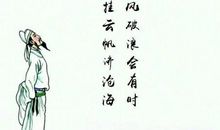 风破浪会有时
挂云帆济沧海